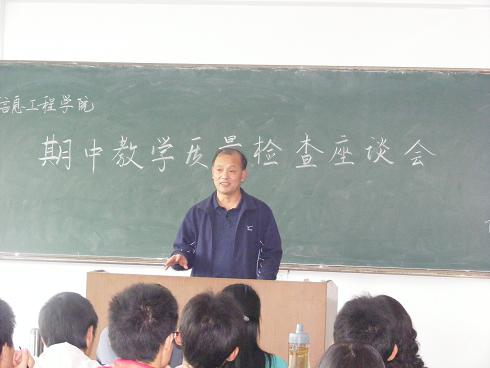 信息工程学院
期中教学质量检查座谈会